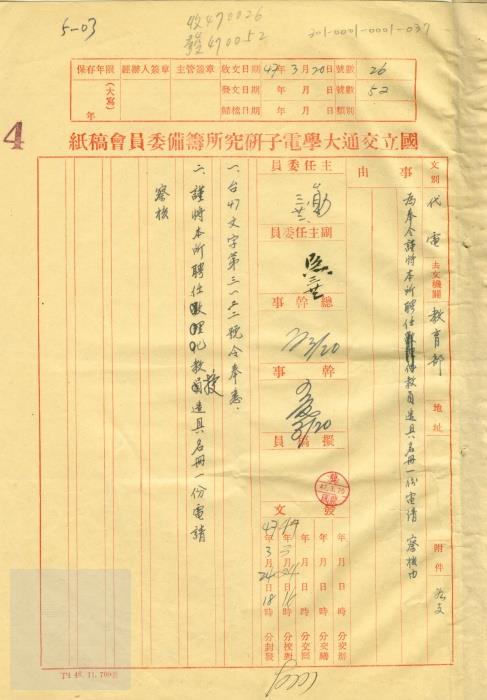 5-03
收470026
發470052
301-0001-0001-037
保存年限
(大寫)
年
經辦人簽章
主管簽章
收文日期 47年3月20日 號數 26
發文日期 年 月 日 號數 52
歸檔日期 年 月 日 類別
4
國立交通大學電子研究所籌備委員會稿紙
文別 代電
去文機關 教育部
地址
附件 如文
事由
為奉令謹將本所聘任數理化教員造具名冊一份電請 察核由
主任委員
副主任委員
總幹事
3/20
幹事
3/20
擬稿員
發文
年 月 日 時 分交擬
年 月 日 時 分交繕
年 月 日 時 分交印
年 月 日 時 分校對
47年3月24日18時 分封發
一、台47文字第三一五二號令奉悉.
二、謹將本所聘任數理化教授造具名冊一份電請
察核
T4 46. 11. 700番